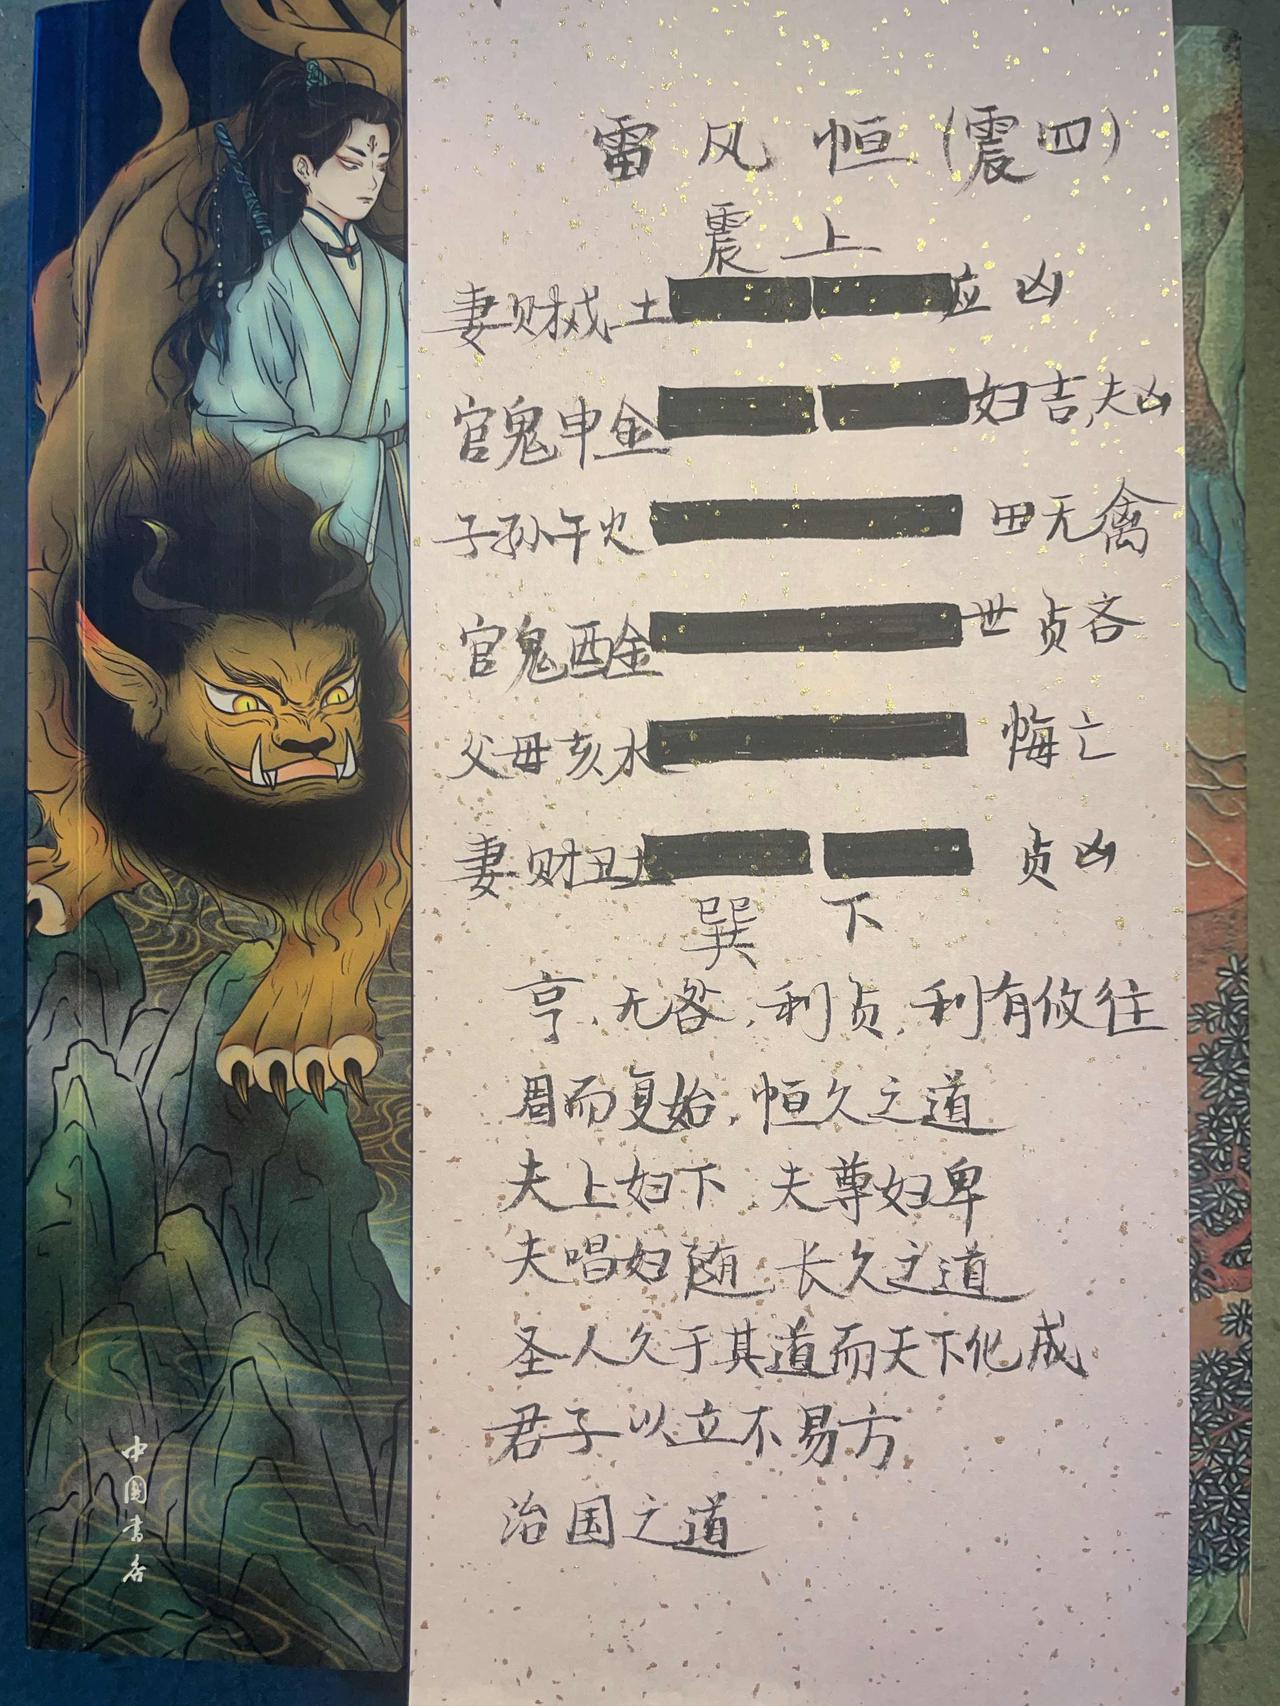 雷风恒(震四)
震上
妻财戌土 应 凶
官鬼申金 妇吉,夫凶
子孙午火 田无禽
官鬼酉金 世 贞吝
父母亥水 悔亡
妻财丑土 贞凶
巽下
亨,无咎,利贞,利有攸往
周而复始,恒久之道
夫上妇下 夫尊妇卑
夫唱妇随 长久之道
圣人久于其道而天下化成
君子以立不易方
治国之道
中国书店